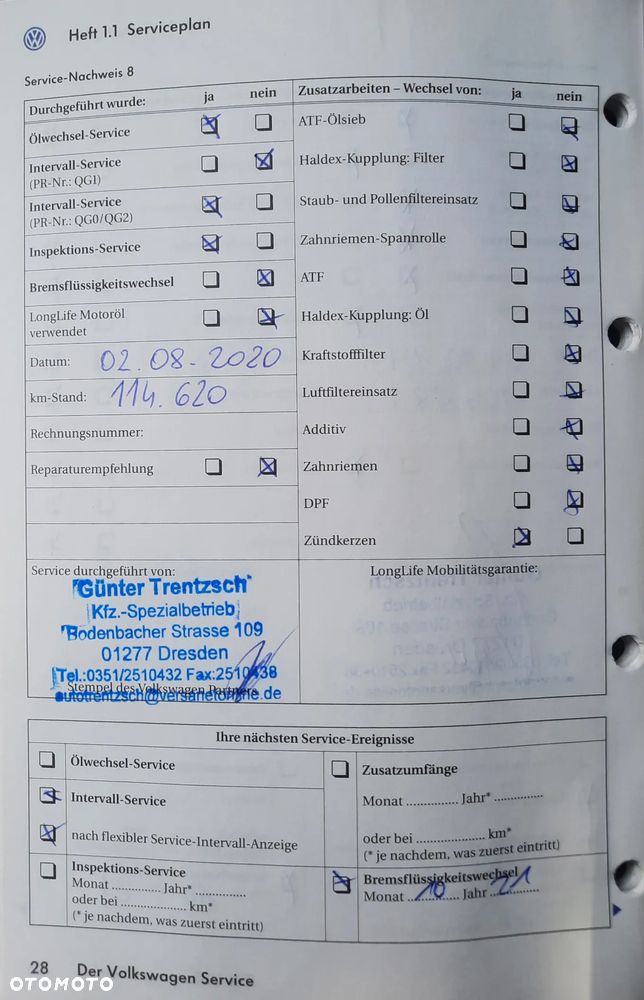 Heft 1.1 Serviceplan
Service-Nachweis 8
Durchgeführt wurde: ja nein
Ölwechsel-Service
Intervall-Service
(PR-Nr.: QG1)
Intervall-Service
(PR-Nr.: QG0/QG2)
Inspektions-Service
Bremsflüssigkeitswechsel
LongLife Motoröl
verwendet
Datum: 02.08-2020
km-Stand: 114.620
Rechnungsnummer:
Reparaturempfehlung
Zusatzarbeiten – Wechsel von: ja nein
ATF-Ölsieb
Haldex-Kupplung: Filter
Staub- und Pollenfiltereinsatz
Zahnriemen-Spannrolle
ATF
Haldex-Kupplung: Öl
Kraftstofffilter
Luftfiltereinsatz
Additiv
Zahnriemen
DPF
Zündkerzen
Service durchgeführt von:
Günter Trentzsch
Kfz.-Spezialbetrieb
Bodenbacher Strasse 109
01277 Dresden
Tel.:0351/2510432 Fax:2510438
Stempel des Volkswagen Partners
autotrentzsch@versanetonline.de
LongLife Mobilitätsgarantie:
Ihre nächsten Service-Ereignisse
Ölwechsel-Service
Intervall-Service
nach flexibler Service-Intervall-Anzeige
Inspektions-Service
Monat .............. Jahr* ..............
oder bei .................... km*
(* je nachdem, was zuerst eintritt)
Zusatzumfänge
Monat .............. Jahr* ..............
oder bei .................... km*
(* je nachdem, was zuerst eintritt)
Bremsflüssigkeitswechsel
Monat 10 Jahr 21
28 Der Volkswagen Service
OTOMOTO